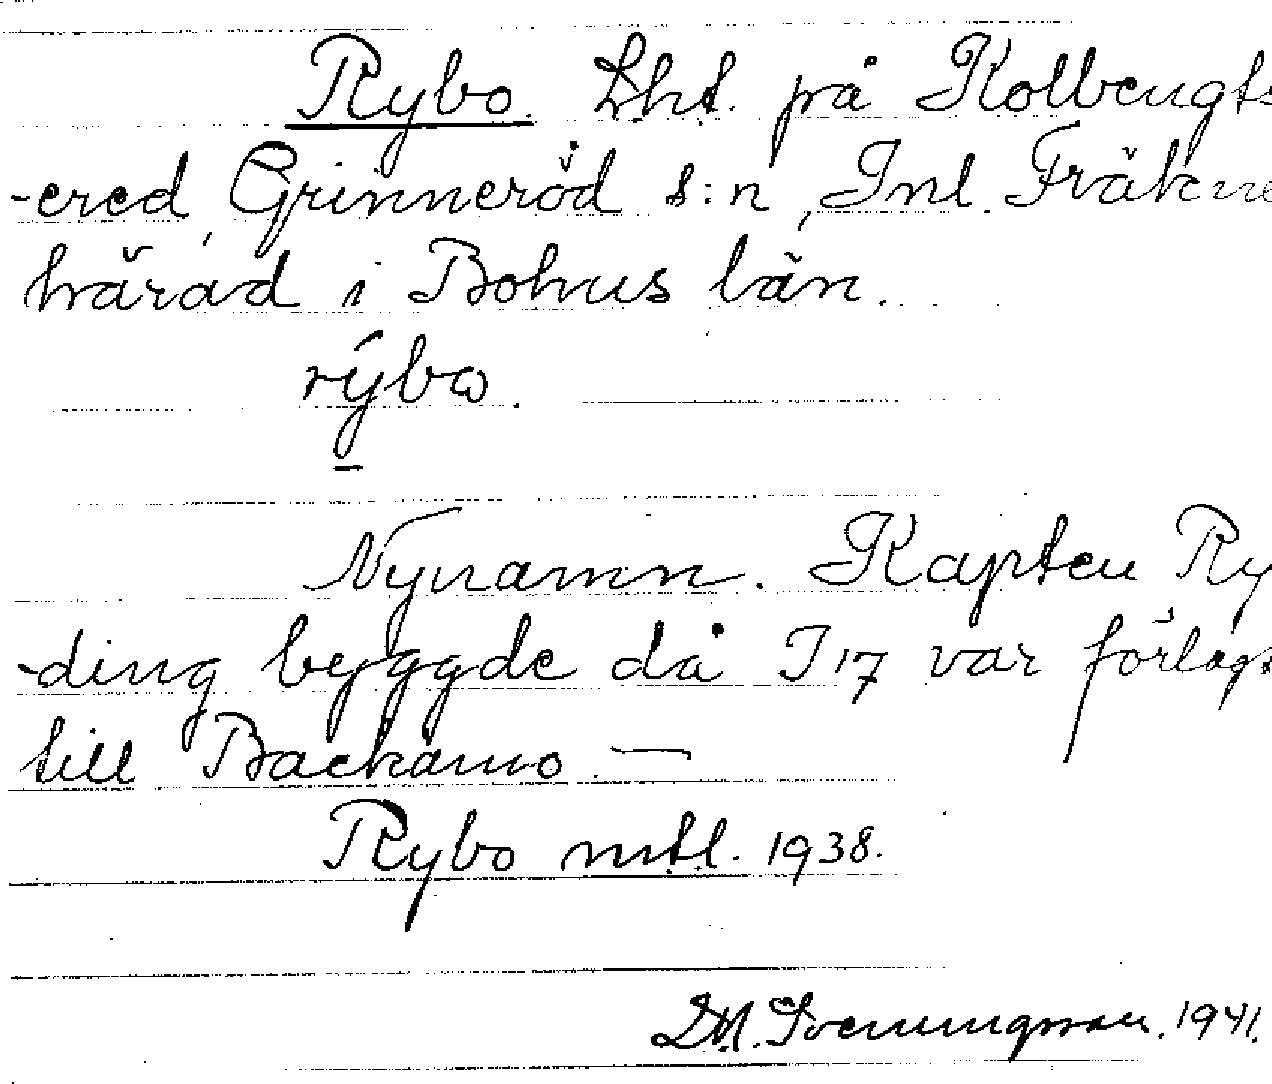 Rybo. Lht. på Kolbengts
-ered, Grinneröd s:n, Inl. Fräkne
härad i Bohus län.
rýbω.
Nynamn. Kapten Ry
-ding byggde då I 17 var förlagt
till Backamo —
Rybo mtl. 1938.
Sveningsson. 1941.